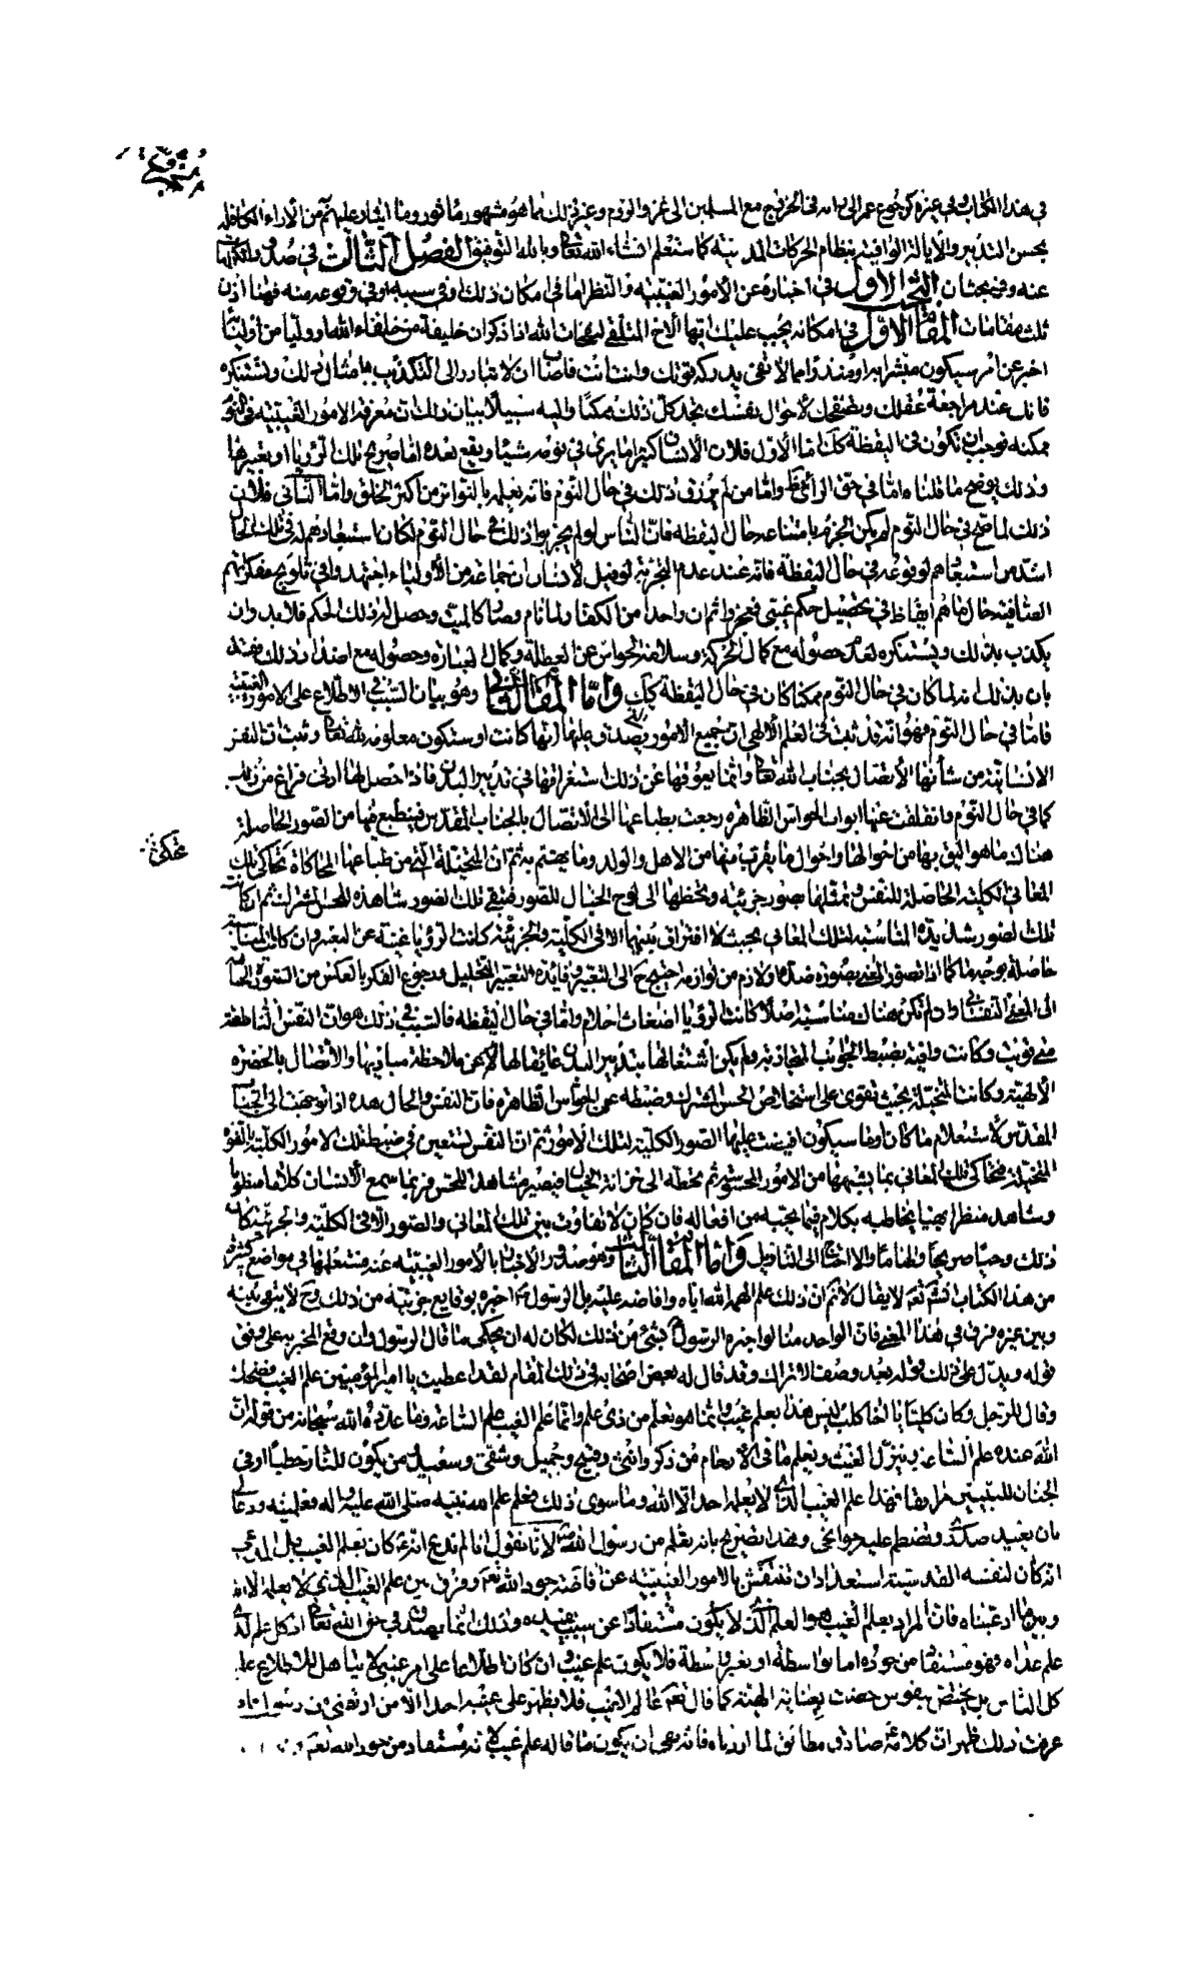 في هذا الكتاب وفي غيره كرجوع عمر الى رايه في الخروج مع المسلمين الى غزو الروم وغير ذلك مما هو مشهور مأثور وما اشار عليهم من الآراء الكافلة
بحسن التدبير والايالة الوافية بنظام الحركات المدنية كما ستعلم انشاء الله تعالى وبالله التوفيق الفصل الثالث في صدور الكرامات
عنه وفيه بحثان البحث الاول في اخباره عن الامور الغيبية والنظر اما في امكان ذلك او في سببه او في وقوعه منه فهنا اذن
ثلث مقامات المقام الاول في امكانه يجب عليك ايها الاخ المتلقي لنفحات الله اذا ذكر ان خليفة من خلفاء الله او وليا من اوليائه
اخبر عن امر سيكون مبشرا به او منذرا مما لا تفي بدركه قوتك وانت انت فاصنا ان لا تبادر الى التكذيب بامثال ذلك وتستنكره
فانك عند مراجعة عقلك وتصفحك لاحوال نفسك تجد كل ذلك ممكنا واليه سبيلا بيان ذلك ان معرفة الامور الغيبية في النوم
ممكنة فوجب ان تكون في اليقظة كذلك اما الاول فلان الانسان كثيرا ما يرى في نومه شيئا ويقع بعده اما صريح تلك الرؤيا او تعبيرها
وذلك يوضح ما قلناه اما في حق الرائي فظ واما من لم يرزق ذلك في حال النوم فانه يعلمه بالتواتر من اكثر الخلق واما الثاني فلان
ذلك لما صح في حال النوم لم يكن الجزم بامتناعه حال اليقظة فان الناس لو لم يجربوا ذلك في حال النوم لكان استبعادهم له في تلك الحال
اشد من استبعادهم لوقوعه في حال اليقظة فانه عند عدم التجربة لو قيل لانسان ان جماعة من الاولياء اجتهدوا في تلويح مفكرتهم
الصافية حال ما هم ايقاظ في تحصيل حكم غيبي فعجزوا ثم ان واحدا من الكفار لما نام وصار كالميت وحصل له ذلك الحكم فلا بد وان
يكذب بذلك ويستنكره لعدم حصوله مع كمال الحركة وسلامة الحواس عن العطلة وكمال العبارة وحصوله مع اضداد ذلك فقد
بان بذلك انه لما كان في حال النوم ممكنا كان في حال اليقظة كذلك واما المقام الثاني وهو بيان السبب في الاطلاع على الامور الغيبية
فاما في حال النوم فهو انه قد ثبت في العلم الالهي ان جميع الامور يصدق عليها انها كانت او ستكون معلومة لله تعالى وثبت ان النفس
الانسانية من شانها الاتصال بجناب الله تعالى وانما يعوقها عن ذلك استغراقها في تدبير البدن فاذا حصل لها ادنى فراغ من ذلك
كما في حال النوم وانغلقت عنها ابواب الحواس الظاهرة رجعت بطباعها الى الاتصال بالجناب المقدس فينطبع فيها من الصور الحاصلة
هناك ما هو اليق بها من احوالها واحوال ما يقرب منها من الاهل والولد وما يهتم به ثم ان المتخيلة التي من طباعها المحاكاة تحاكي تلك
المعاني الكلية الحاصلة للنفس وتمثلها بصور جزئية وتحطها الى لوح الخيال للصور فتبقى تلك الصور شاهدة للحس المشترك ثم ان كانت
تلك الصور شديدة المناسبة لتلك المعاني بحيث لا افتراق بينهما الا في الكلية والجزئية كانت الرؤيا غنية عن التعبير وان كان المناسبة
حاصلة بوجه ما كما اذا تصور المعنى بصورة ضده او لازم من لوازمه احتيج ح الى التعبير وفائدة التعبير التحليل ورجوع الفكر بالعكس من الصورة الخيالية
الى المعنى النفساني وان لم تكن هناك مناسبة اصلا كانت الرؤيا اضغاث احلام واما في حال اليقظة فالسبب في ذلك هو ان النفس الناطقة
متى قويت وكانت وافية بضبط الجوانب المتجاذبة ولم يكن اشتغالها بتدبير البدن عائقا لها عن ملاحظة مباديها والاتصال بالحضرة
الالهية وكانت المتخيلة بحيث تقوى على استخلاص الحس المشترك وضبطه عن الحواس الظاهرة فان النفس والحال هذه اذا توجهت الى الجناب
المقدس لاستعلام ما كان او ما سيكون افيضت عليها الصور الكلية لتلك الامور ثم ان النفس تستعين في ضبط تلك الامور الكلية بالقوة
المتخيلة فتحاكي تلك المعاني بما يشبهها من الامور المحسوسة ثم تحطه الى خزانة الخيال فيصير مشاهدا للحس فربما سمع الانسان كلاما منظوما
وشاهد منظرا بهيا يخاطبه بكلام فيما يحبه من افعاله فان كان لا تفاوت بين تلك المعاني والصور الا في الكلية والجزئية كان
ذلك وحيا صريحا والهاما والا احتاج الى التاويل واما المقام الثالث وهو صدور الاخبار بالامور الغيبية عنه فستعلمها في مواضع كثيرة
من هذا الكتاب انشاء الله تعالى لا يقال لا نم ان ذلك علم الهمه الله اياه وافاضه عليه بل الرسول ص اخبره بوقايع جزئية من ذلك وح لا يبقى بينه
وبين غيره فرق في هذا المعنى فان الواحد منا لو اخبره الرسول بشئ من ذلك لكان له ان يحكي ما قال الرسول وان وقع المخبر به على وفق
قوله ويدل على ذلك قوله بعد وصف الاتراك وقد قال له بعض اصحابه في ذلك المقام لقد اعطيت يا امير المؤمنين علم الغيب فضحك
وقال للرجل وكان كلبيا يا اخا كلب ليس هذا بعلم غيب وانما هو تعلم من ذي علم وانما علم الغيب علم الساعة وما عدده الله سبحانه من قوله ان
الله عنده علم الساعة وينزل الغيث ويعلم ما في الارحام من ذكر وانثى وقبيح وجميل وشقي وسعيد ومن يكون للنار حطبا او في
الجنان للنبيين مرافقا فهذا علم الغيب الذي لا يعلمه احد الا الله وما سوى ذلك فعلم علم الله نبيه صلى الله عليه وآله فعلمنيه ودعا لي
بان يعيه صدري وتضطم عليه جوانحي وهذا تصريح بانه تعلم من رسول الله ص لانا نقول انا لم ندع انه ع كان يعلم الغيب بل المدعى
انه كان لنفسه القدسية استعداد ان تنتقش بالامور الغيبية عن افاضة جود الله تعالى وفرق بين علم الغيب الذي لا يعلمه الا الله
وبين ما ادعيناه فان المراد بعلم الغيب هو العلم الذي لا يكون مستفادا عن سبب يفيده وذلك انما يصدق في حق الله تعالى اذ كل علم لذي
علم عداه فهو مستفاد من جوده اما بواسطة او بغير واسطة فلا يكون علم غيب وان كان اطلاعا على امر غيبي لا يتاهل للاطلاع عليه
كل الناس بل يختص بنفوس خصت بعناية الهية كما قال تعالى عالم الغيب فلا يظهر على غيبه احدا الا من ارتضى من رسول واذا
عرفت ذلك ظهر ان كلامه ع صادق مطابق لما اردناه فانه نفى ان يكون ما قاله علم غيب لانه مستفاد من جود الله تعالى